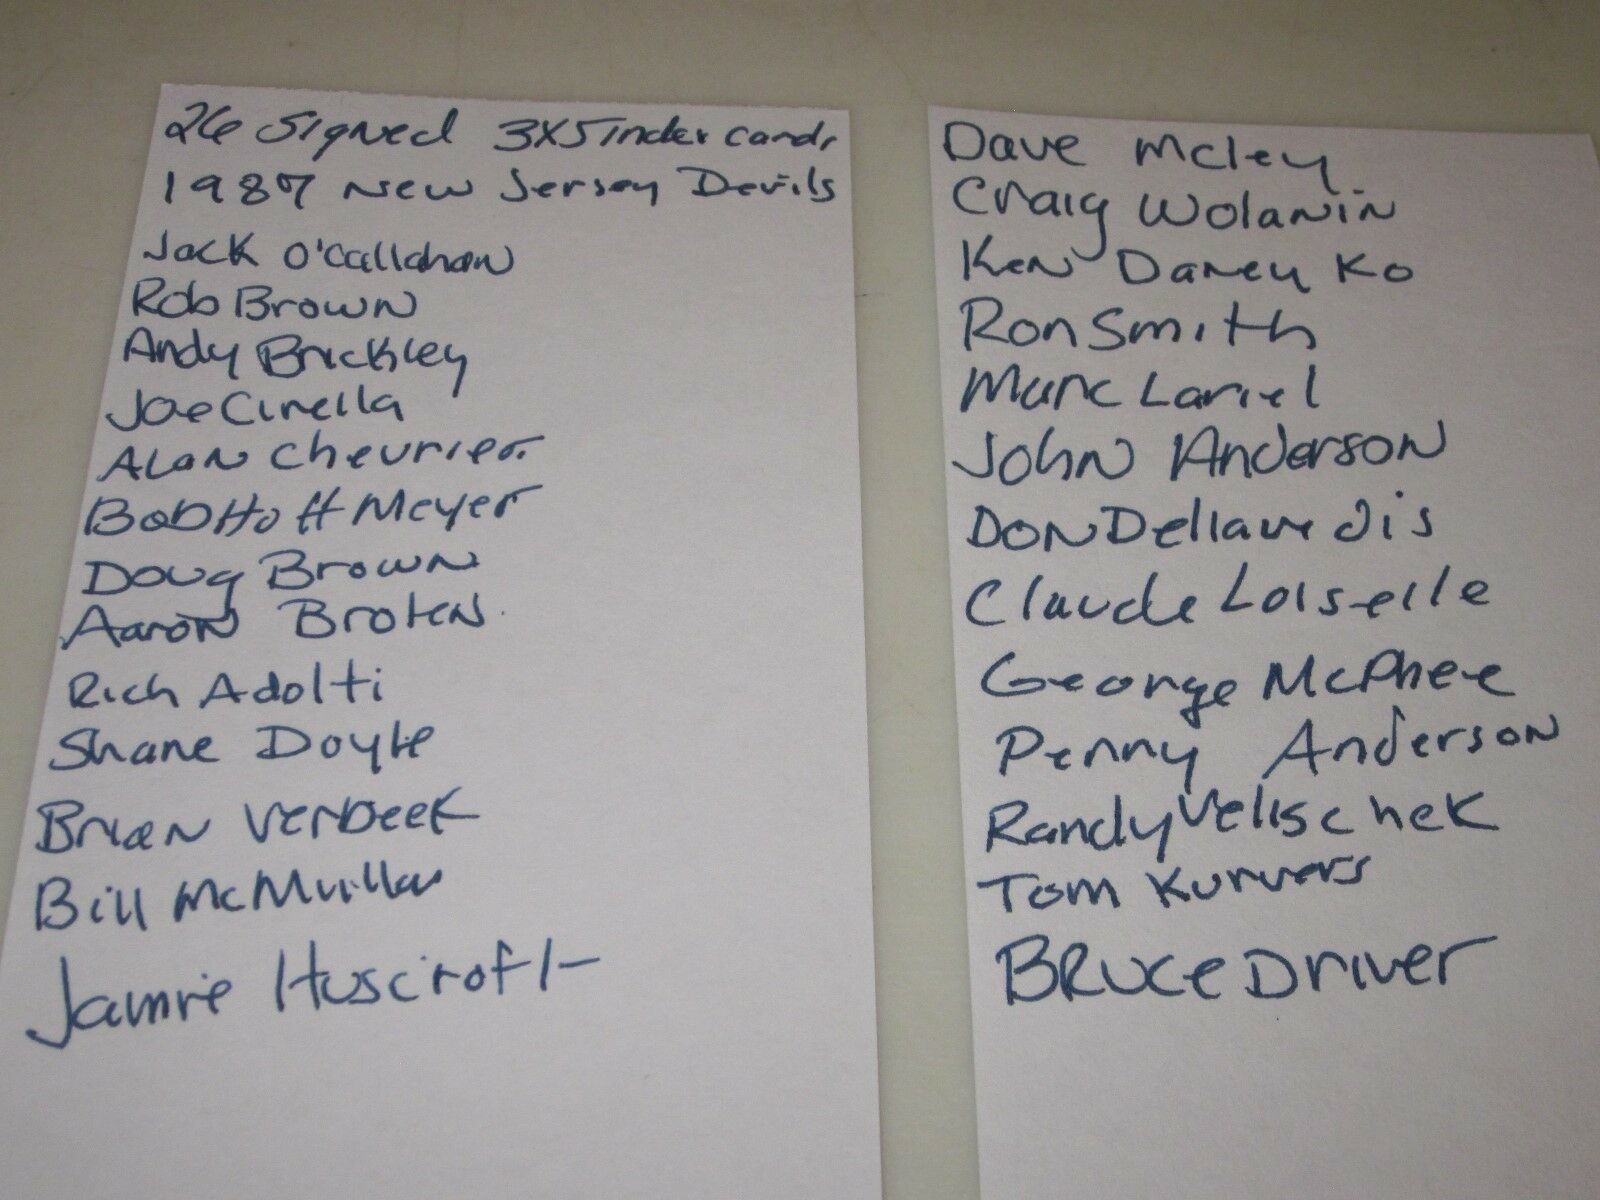 26 Signed 3X5 index cards
1987 New Jersey Devils
Jack O'Callahan
Rob Brown
Andy Brickley
Joe Cirella
Alan Chevrier
Bob Hoffmeyer
Doug Brown
Aaron Broten
Rich Adolfi
Shane Doyle
Brian Verbeek
Bill McMullan
Jamie Huscroft
Dave McLey
Craig Wolanin
Ken Daney Ko
Ron Smith
Marc Lariel
John Anderson
Don Dellavedis
Claude Loiselle
George McPhee
Penny Anderson
Randy Velischek
Tom Kurvers
Bruce Driver